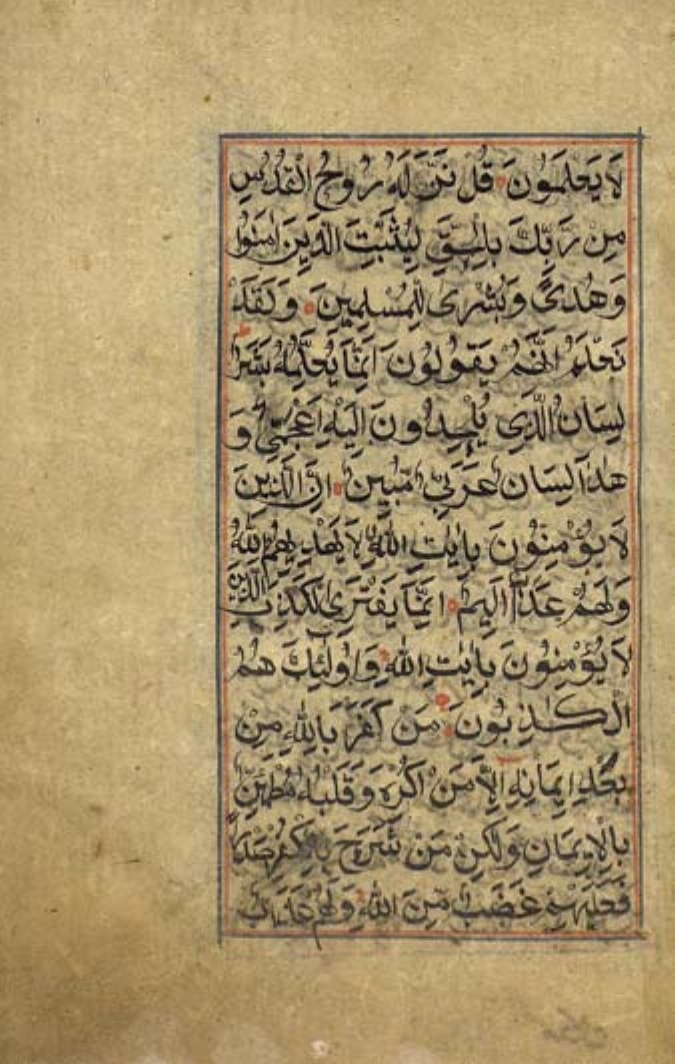 لَا يَعْلَمُونَ قُلْ نَزَّلَهُ رُوحُ الْقُدُسِ
مِنْ رَبِّكَ بِالْحَقِّ لِيُثَبِّتَ الَّذِينَ اٰمَنُوا
وَهُدًى وَبُشْرٰى لِلْمُسْلِمِينَ وَلَقَدْ
نَعْلَمُ اَنَّهُمْ يَقُولُونَ اِنَّمَا يُعَلِّمُهُ بَشَرٌ
لِسَانُ الَّذِى يُلْحِدُونَ اِلَيْهِ اَعْجَمِىٌّ وَ
هٰذَا لِسَانٌ عَرَبِىٌّ مُبِينٌ اِنَّ الَّذِينَ
لَا يُؤْمِنُونَ بِاٰيٰتِ اللّٰهِ لَا يَهْدِيهِمُ اللّٰهُ
وَلَهُمْ عَذَابٌ اَلِيمٌ اِنَّمَا يَفْتَرِى الْكَذِبَ الَّذِينَ
لَا يُؤْمِنُونَ بِاٰيٰتِ اللّٰهِ وَاُولٰئِكَ هُمُ
الْكٰذِبُونَ مَنْ كَفَرَ بِاللّٰهِ مِنْ
بَعْدِ اِيمَانِهِ اِلَّا مَنْ اُكْرِهَ وَقَلْبُهُ مُطْمَئِنٌّ
بِالْاِيمَانِ وَلٰكِنْ مَنْ شَرَحَ بِالْكُفْرِ صَدْرًا
فَعَلَيْهِمْ غَضَبٌ مِنَ اللّٰهِ وَلَهُمْ عَذَابٌ